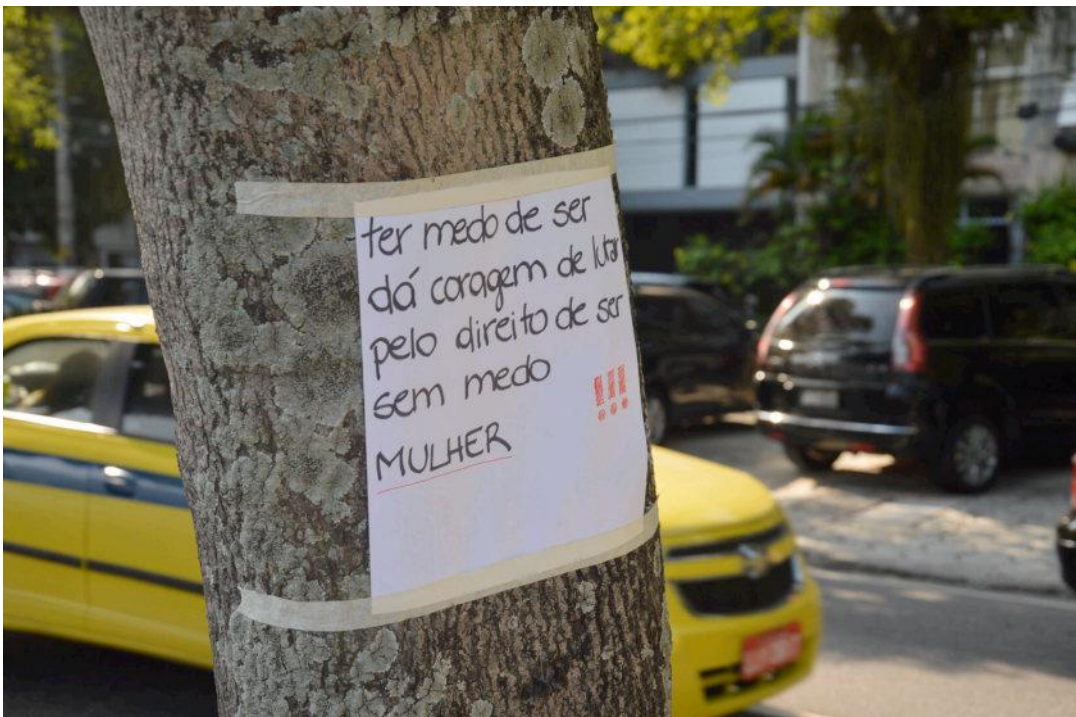 ter medo de ser
dá coragem de lutar
pelo direito de ser
sem medo
!!!
MULHER